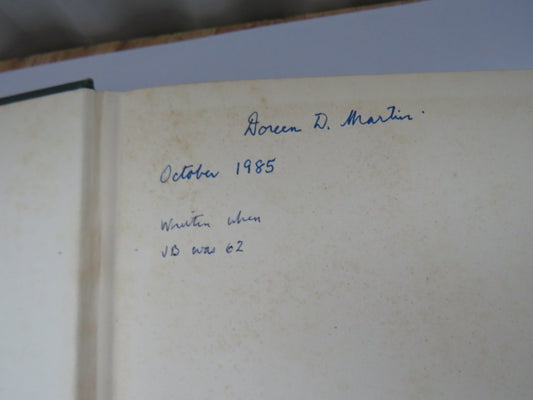 Doreen D. Martin.
October 1985
Written when
JB was 62